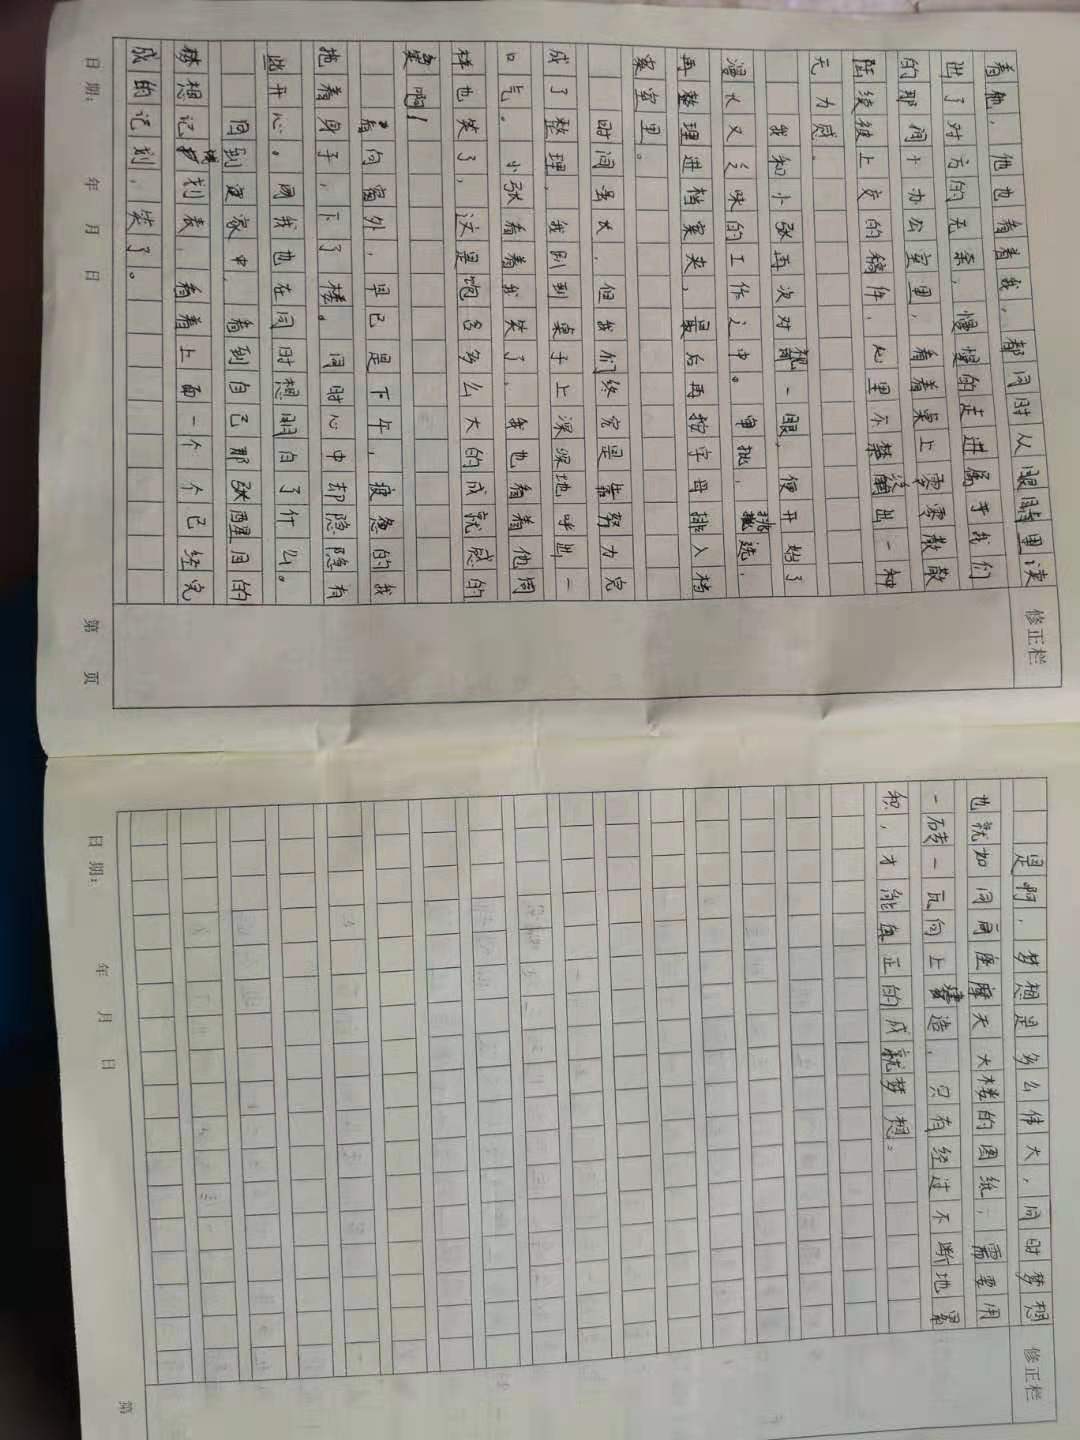 着他，他也看着我，都同时从眼睛里读
出了对方的无奈，慢慢的走进属于我们
的那间小办公室里，看着桌上零零散散
陆续被上交的稿件，心里不禁出一种
无力感。
我和小张再次对视一眼，便开始了
漫长又乏味的工作之中。审批、挑选、
再整理进档案夹，最后再按字母排入档
案室里。
时间虽长，但我们终究是靠努力完
成了整理，我趴到桌子上深深地呼出一
口气。小张看着我笑了，我也看着他同
样也笑了，这是饱含多么大的成就感的
笑啊！
看向窗外，早已是下午，疲惫的我
拖着身子，下了楼。同时心中却隐隐有
些开心。因我也在同时想明白了什么。
回到家中，看到自己那张醒目的
梦想记划表，看着上面一个个已经完
成的记划，笑了。
日期： 年 月 日 第 页
修正栏
是啊，梦想是多么伟大，同时梦想
也就如同一座摩天大楼的图纸，需要用
一砖一瓦向上建造，只有经过不断地累
积，才能真正的成就梦想。
日期： 年 月 日 第
修正栏